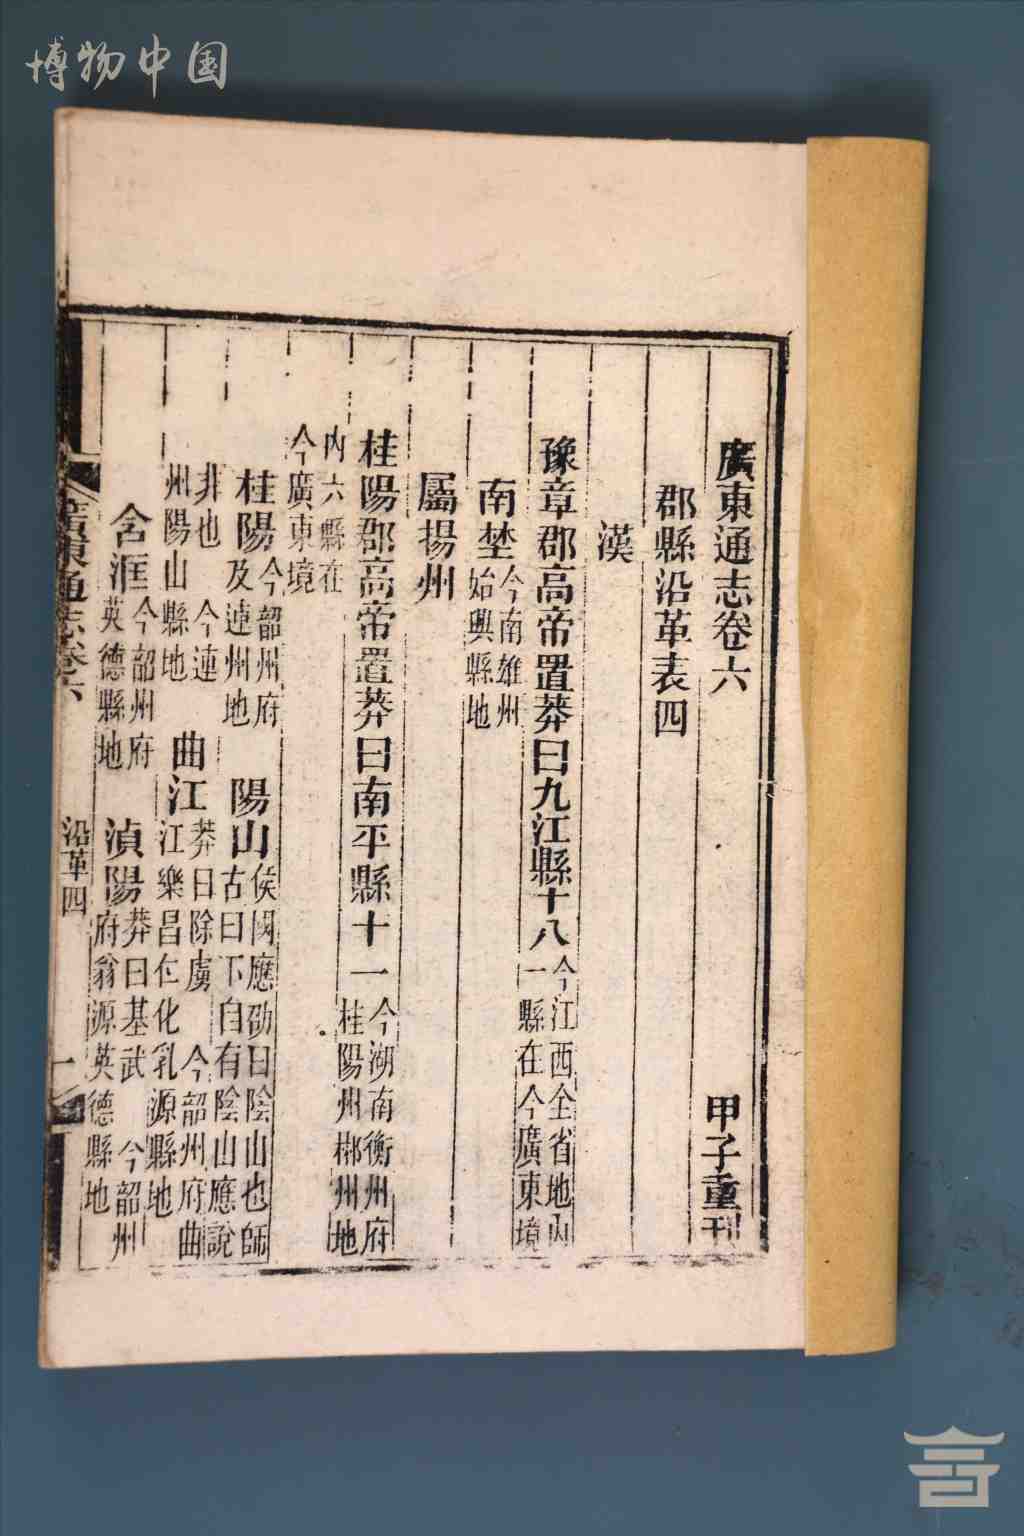 博物中国
廣東通志卷六 甲子重刊
郡縣沿革表四
漢
豫章郡高帝置莽曰九江縣十八今江西全省地內一縣在今廣東境
南埜今南雄州始興縣地
屬揚州
桂陽郡高帝置莽曰南平縣十一今湖南衡州府桂陽州郴州地
內六縣在今廣東境
桂陽今韶州府及連州地 陽山侯國應劭曰陰山也師古曰下自有陰山應說
非也 今連州陽山縣地 曲江莽曰除虜 今韶州府曲江樂昌仁化乳源縣地
含洭今韶州府英德縣地 湞陽莽曰基武 今韶州府翁源英德縣地
廣東通志卷六 沿革四 一